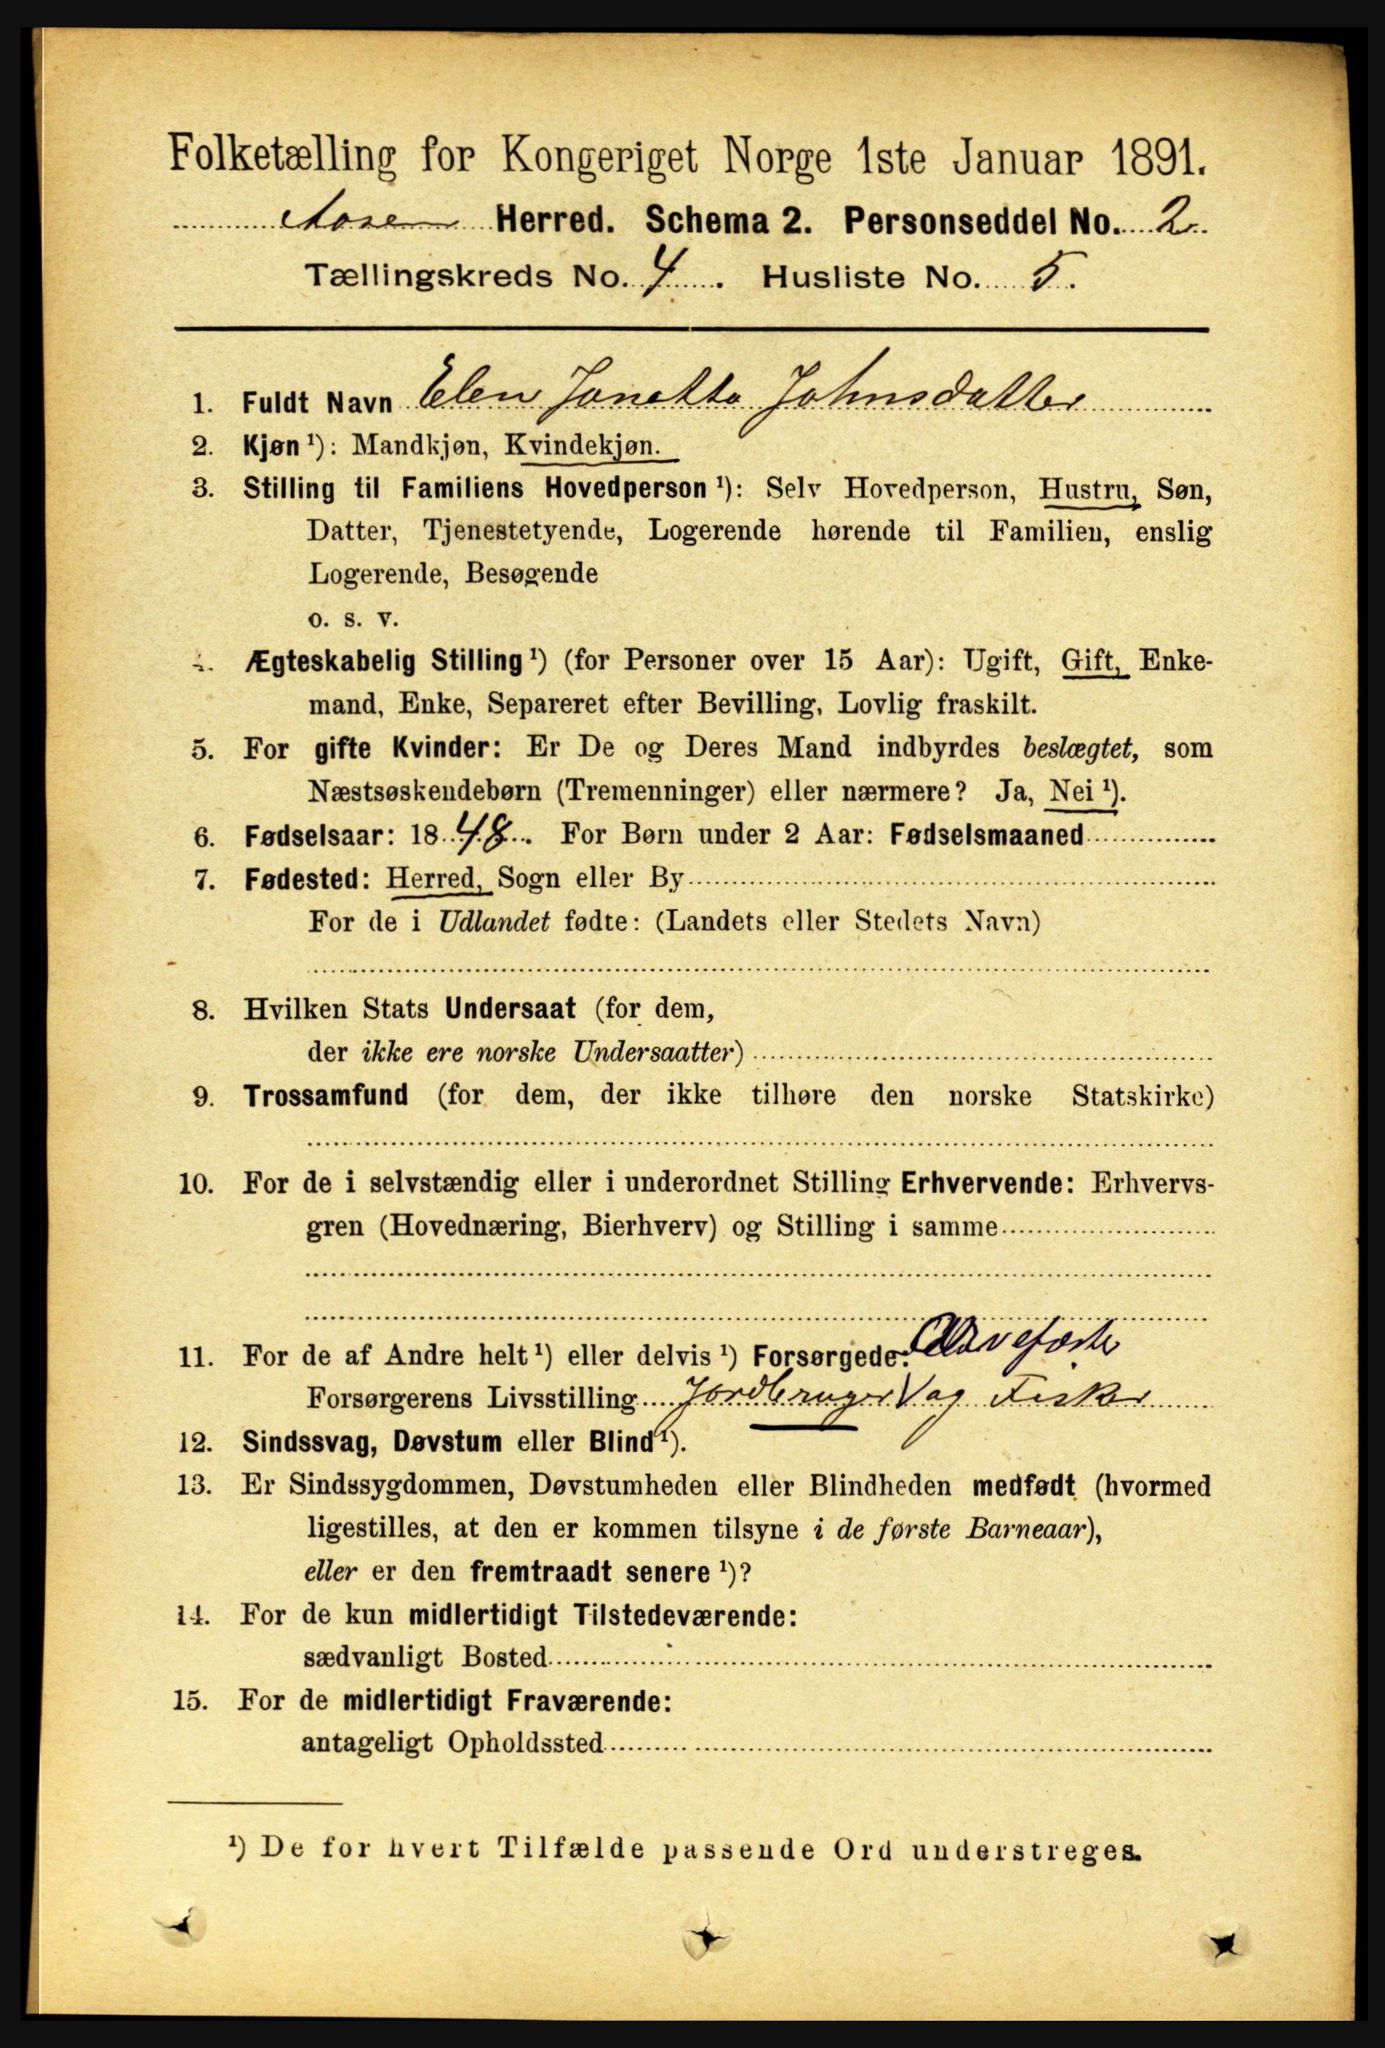 Folketælling for Kongeriget Norge 1ste Januar 1891.
Herred. Schema 2. Personseddel No. 2.
Tællingskreds No. 4. Husliste No. 5.
1. Fuldt Navn Elen Janetta Johnsdatter
2. Kjøn ¹): Mandkjøn, Kvindekjøn.
3. Stilling til Familiens Hovedperson ¹): Selv Hovedperson, Hustru, Søn,
Datter, Tjenestetyende, Logerende hørende til Familien, enslig
Logerende, Besøgende
o. s. v.
4. Ægteskabelig Stilling ¹) (for Personer over 15 Aar): Ugift, Gift, Enke-
mand, Enke, Separeret efter Bevilling, Lovlig fraskilt.
5. For gifte Kvinder: Er De og Deres Mand indbyrdes beslægtet, som
Næstsøskendebørn (Tremenninger) eller nærmere? Ja, Nei ¹).
6. Fødselsaar: 1848. For Børn under 2 Aar: Fødselsmaaned
7. Fødested: Herred, Sogn eller By
For de i Udlandet fødte: (Landets eller Stedets Navn)
8. Hvilken Stats Undersaat (for dem,
der ikke ere norske Undersaatter)
9. Trossamfund (for dem, der ikke tilhøre den norske Statskirke)
10. For de i selvstændig eller i underordnet Stilling Erhvervende: Erhvervs-
gren (Hovednæring, Bierhverv) og Stilling i samme
11. For de af Andre helt ¹) eller delvis ¹) Forsørgede:
Forsørgerens Livsstilling Jordbruger og Fisker
12. Sindssvag, Døvstum eller Blind ¹).
13. Er Sindssygdommen, Døvstumheden eller Blindheden medfødt (hvormed
ligestilles, at den er kommen tilsyne i de første Barneaar),
eller er den fremtraadt senere ¹)?
14. For de kun midlertidigt Tilstedeværende:
sædvanligt Bosted
15. For de midlertidigt Fraværende:
antageligt Opholdssted
¹) De for hvert Tilfælde passende Ord understreges.